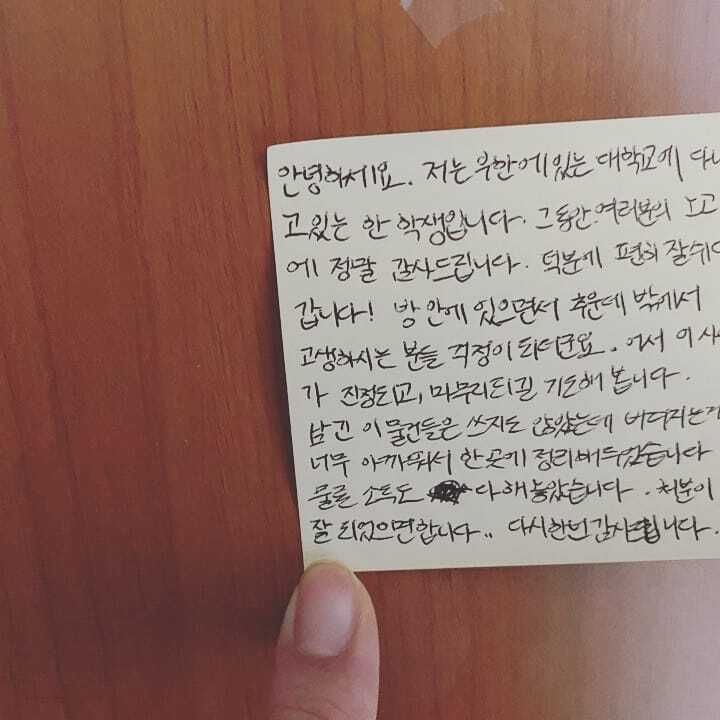 안녕하세요. 저는 우한에 있는 대학교에 다니
고 있는 한 학생입니다. 그동안 여러분의 노고
에 정말 감사드립니다. 덕분에 편히 잘 쉬다
갑니다! 방 안에 있으면서 추운데 밖에서
고생하시는 분들 걱정이 되더군요. 어서 이 사
가 진정되고, 마무리되길 기도해 봅니다.
남긴 이 물건들은 쓰지도 않았는데 버려지는게
너무 아까워서 한곳에 정리해두었습니다
물론 소독도 다 해놓았습니다. 처분이
잘 되었으면 합니다.. 다시한번 감사드립니다.